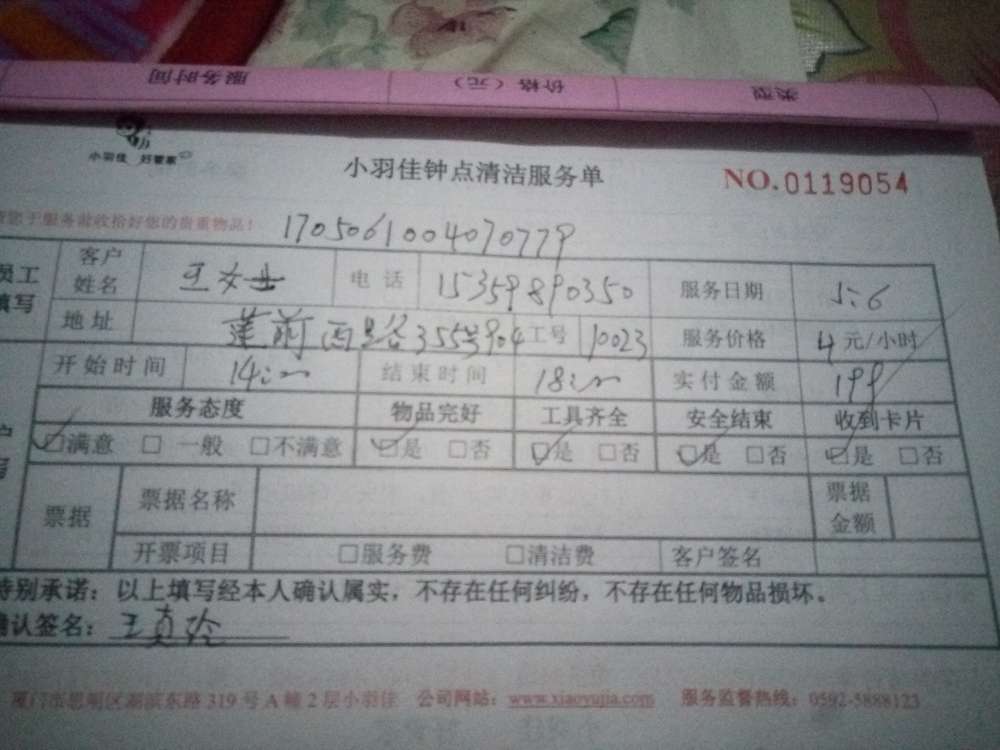 服务时间 价格（元） 类型
小羽佳 好管家
小羽佳钟点清洁服务单 NO.0119054
于服务前收拾好您的贵重物品！ 1705061004070779
员工填写 客户姓名 王女士 电话 15359890350 服务日期 5.6
地址 莲前西路355号904 工号 10023 服务价格 4 元/小时
开始时间 14: 结束时间 18: 实付金额 199
服务态度 物品完好 工具齐全 安全结束 收到卡片
□满意 □一般 □不满意 □是 □否 □是 □否 □是 □否 □是 □否
票据 票据名称 票据金额
开票项目 □服务费 □清洁费 客户签名
特别承诺：以上填写经本人确认属实，不存在任何纠纷，不存在任何物品损坏。
确认签名：王真玲
厦门市思明区湖滨东路319号A幢2层小羽佳 公司网站：www.xiaoyujia.com 服务监督热线：0592-5888123